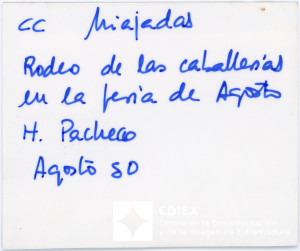 CC Miajadas
Rodeo de las caballerías
en la feria de Agosto
H. Pacheco
Agosto 80
CDIEX